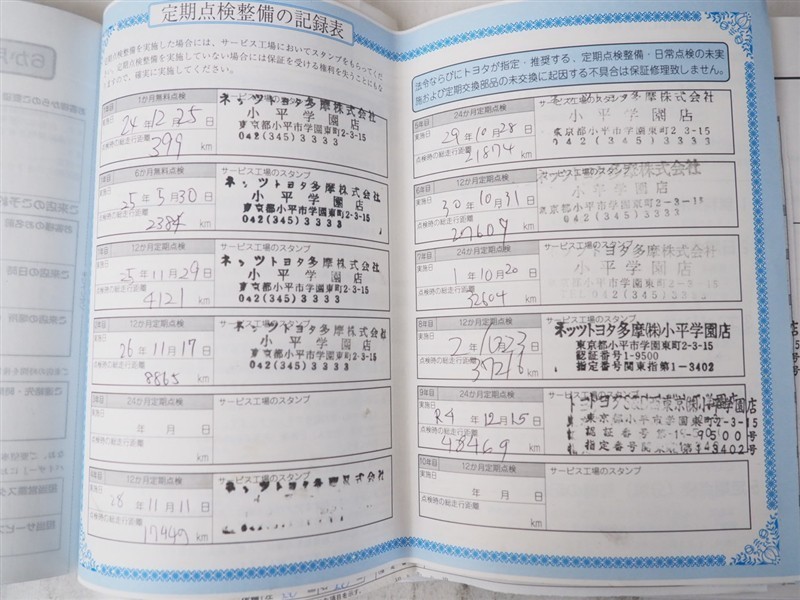 定期点検整備の記録表
定期点検整備を実施した場合には、サービス工場においてスタンプをもらってく
定期点検整備を実施していない場合には保証を受ける権利を失うことにも
ますので、確実に実施してください。
1か月無料点検
サービス工場のスタンプ
実施日
24年12月25日
点検時の総走行距離
399 km
ネッツトヨタ多摩株式会社
小平学園店
東京都小平市学園東町2-3-15
042(345)3333
6か月無料点検
サービス工場のスタンプ
実施日
25年5月30日
点検時の総走行距離
2384 km
ネッツトヨタ多摩株式会社
小平学園店
東京都小平市学園東町2-3-15
042(345)3333
12か月定期点検
サービス工場のスタンプ
実施日
25年11月29日
点検時の総走行距離
4121 km
ネッツトヨタ多摩株式会社
小平学園店
東京都小平市学園東町2-3-15
042(345)3333
12か月定期点検
サービス工場のスタンプ
実施日
26年11月17日
点検時の総走行距離
8865 km
ネッツトヨタ多摩株式会社
小平学園店
東京都小平市学園東町2-3-15
042(345)3333
24か月定期点検
サービス工場のスタンプ
実施日
年 月 日
点検時の総走行距離
km
12か月定期点検
サービス工場のスタンプ
実施日
28年11月11日
点検時の総走行距離
17949 km
ネッツトヨタ多摩株式会社
法令ならびにトヨタが指定・推奨する、定期点検整備・日常点検の未実
施および定期交換部品の未交換に起因する不具合は保証修理致しません。
5年目
24か月定期点検
サービス工場のスタンプ
実施日
29年10月28日
点検時の総走行距離
21874 km
ネッツトヨタ多摩株式会社
小平学園店
東京都小平市学園東町2-3-15
042(345)3333
6年目
12か月定期点検
サービス工場のスタンプ
実施日
30年10月31日
点検時の総走行距離
27607 km
ネッツトヨタ多摩株式会社
小平学園店
東京都小平市学園東町2-3-15
042(345)3333
7年目
24か月定期点検
サービス工場のスタンプ
実施日
1年10月20日
点検時の総走行距離
32604 km
ネッツトヨタ多摩株式会社
小平学園店
東京都小平市学園東町2-3-15
042(345)3333
8年目
12か月定期点検
実施日
点検時の総走行距離
km
ネッツトヨタ多摩(株)小平学園店
東京都小平市学園東町2-3-15
認証番号1-9500
指定番号関東指第1-3402
9年目
24か月定期点検
サービス工場のスタンプ
実施日
R4年12月15日
点検時の総走行距離
48469 km
10年目
12か月定期点検
サービス工場のスタンプ
実施日
年 月 日
点検時の総走行距離
km